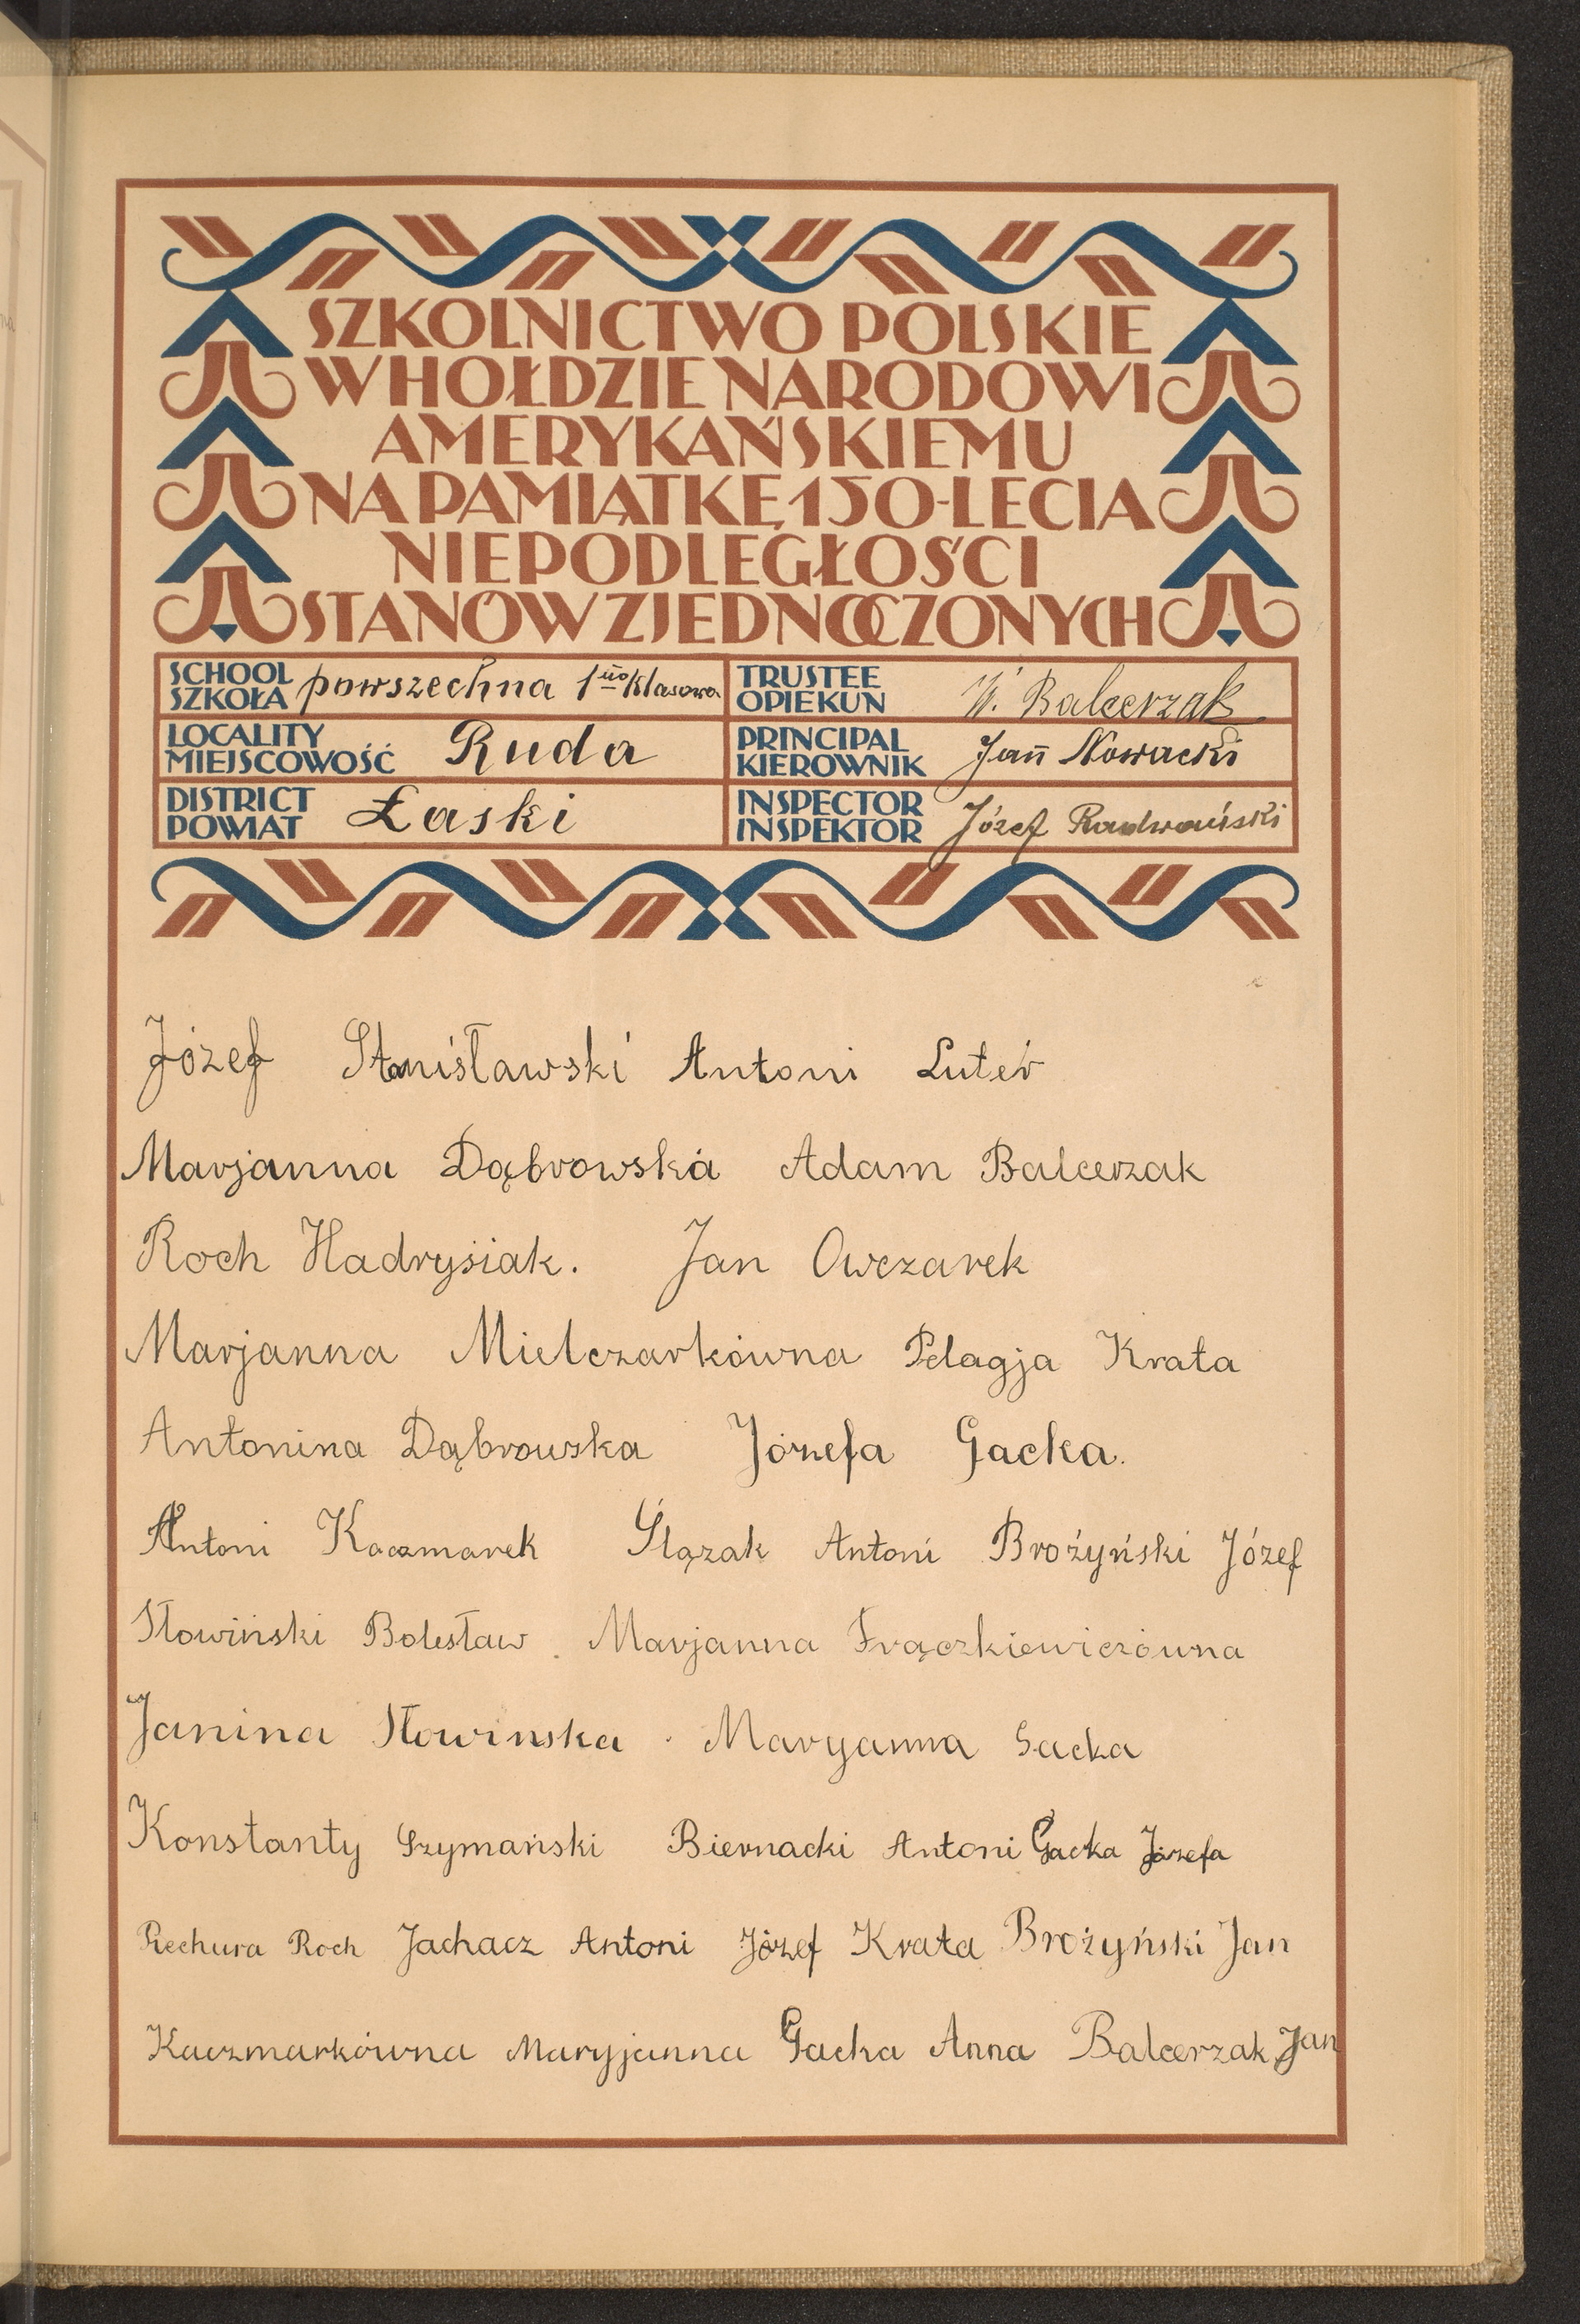 SZKOLNICTWO POLSKIE
W HOŁDZIE NARODOWI
AMERYKAŃSKIEMU
NA PAMIĄTKĘ 150-LECIA
NIEPODLEGŁOŚCI
STANÓW ZJEDNOCZONYCH
SCHOOL SZKOŁA powszechna 1no klasowa TRUSTEE OPIEKUN W. Balcerzak
LOCALITY MIEJSCOWOŚĆ Ruda PRINCIPAL KIEROWNIK Jan Nowacki
DISTRICT POWIAT Łaski INSPECTOR INSPEKTOR Józef Radwański
Józef Stanisławski Antoni Luter
Marjanna Dąbrowska Adam Balcerzak
Roch Hadrysiak. Jan Owczarek
Marjanna Mielczarkówna Pelagja Krata
Antonina Dąbrowska Józefa Gacka.
Antoni Kaczmarek Ślązak Antoni Brożyński Józef
Słowiński Bolesław. Marjanna Frączkiewiczówna
Janina Słowinska. Maryanna Gacka
Konstanty Szymański Biernacki Antoni Gacka Józefa
Piechura Roch Jachacz Antoni Józef Krata Brożyński Jan
Kaczmarkówna Maryjanna Gacka Anna Balcerzak Jan